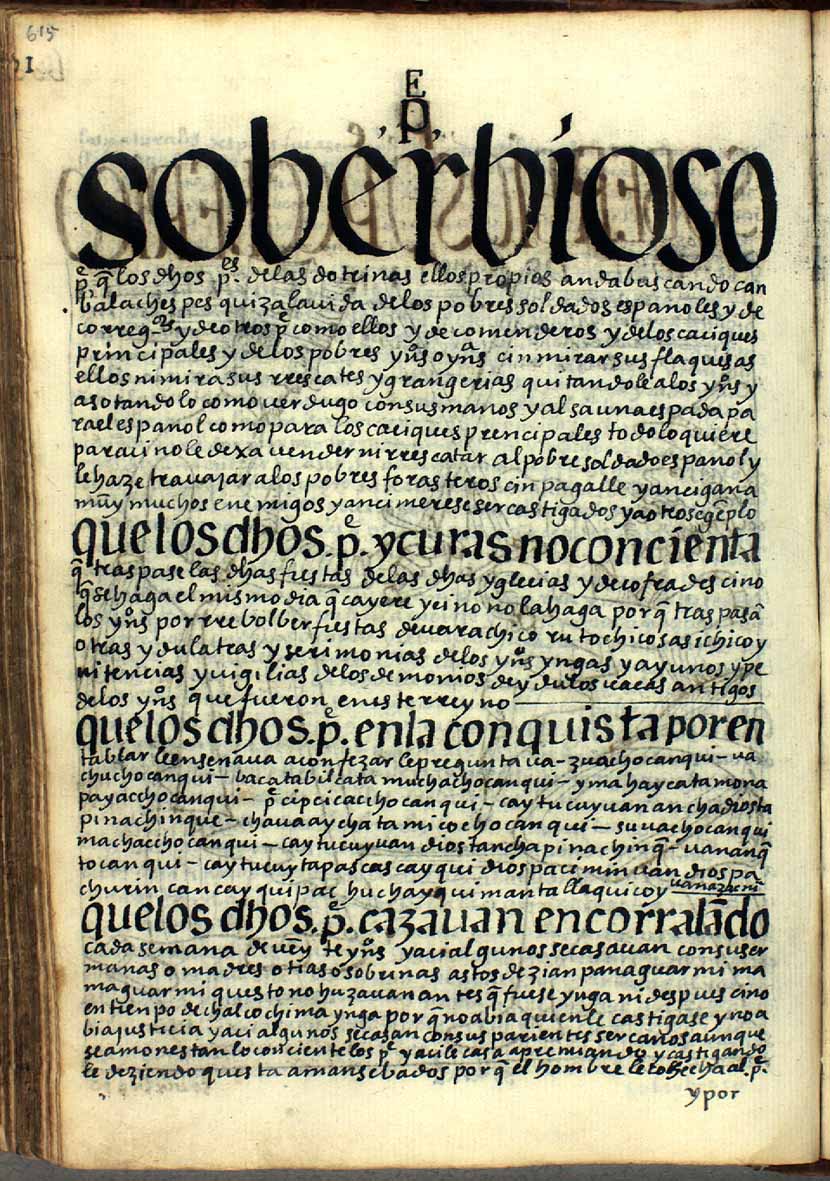 615
E
P
soberbioso
p̄. q̄ los dhos p̄.es de las dotrinas ellos propios anda buscando can
balaches pes quiza la uida de los pobres soldados españoles y de
correg.ores y de otros p̄.e como ellos y de comenderos y de los caciques
prencipales y de los pobres yn̄s o yn̄as cin mirar sus flaquesas
ellos ni mira sus rrescates y grangerias quitandole a los yn̄s y
asotandolo como uerdugo con sus manos y alsa una espada pa
ra el español como para los caciques prencipales todo lo quiere
para ci no le dexa uender ni rrescatar al pobre soldado español y
le haze trauajar a los pobres forasteros cin pagalle y anci gana
muy muchos enemigos y anci merese ser castigados y a otros egēplo
que los dhos. p̄.e y curas no concienta
q̄ traspase las dhas fiestas de las dhas yglecias y de cofrades cino
q̄ se haga el mismo dia q̄ cayere y ci no no la haga por q̄ traspasā
los yn̄s por rrebolber fiestas de uarachico rutochicos asichico y
otras ydulatras y serimonias de los yn̄s yngas y ayunos y pe
nitencias y uigilias de los demonios de ydulos uacas antigos
de los yn̄s que fueron en este rreyno
que los dhos. p̄.e en la conquista por en
tablar le ensenaua a confezar le pregunta ua – zuachocanqui – ua
chuchocanqui – bacatabilcata muchachocanqui – yma haycata mona
payacchocanqui – p̄.e cipcicacchocanqui – caytucuyuanancha diosta
pinachinque – chauaaychata micochocanqui – suuachocanqui
machacchocanqui – caytucuyuan diostancha pinachinq̄ – uananq̄
tocanqui – caytucuytapas cascayqui dios pacimin uan dios pa
churin cancayquipac huchayquimanta llaquicoy uanazacni
que los dhos. p̄.e cazauan encorralādo
cada semana de ueynte yn̄s y aci algunos se casauan con sus er
manas o madres o tias o sobrinas a estos dezian panaguarmi ma
maguarmi questo no huzauan antes q̄ fuese ynga ni despues cino
en tienpo de chalcochima ynga por q̄ no abia quien le castigase y no a
bia justicia y aci algunos se casan con sus parientes sercanos aunque
se amonestan lo conciente los p̄.e y aci le casa apremiando y castigando
le deziendo questa amansebados por q̄ el hombre le cohecha al. p̄.e
y por